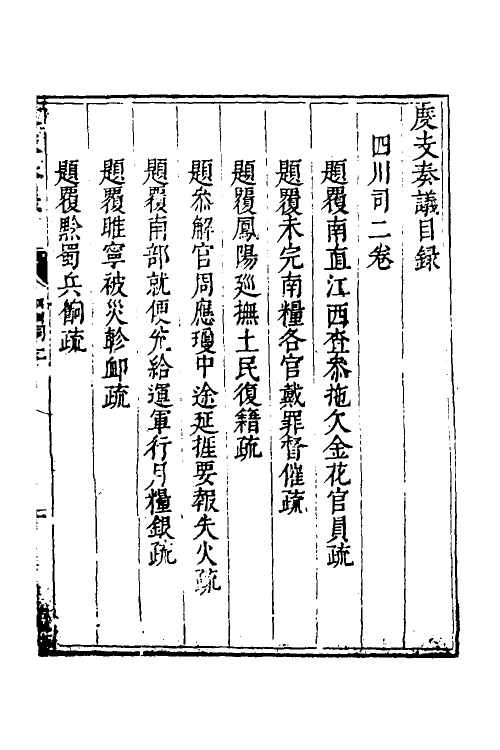 度支奏議目録
四川司二卷
題覆南直江西查叅拖欠金花官員疏
題覆未完南糧各官戴罪督催疏
題覆鳳陽廵撫土民復籍疏
題叅解官周應瓊中途延捱要報失火疏
題覆南部就便兌給運軍行月糧銀疏
題覆睢寧被災軫䘏疏
題覆黔蜀兵餉疏